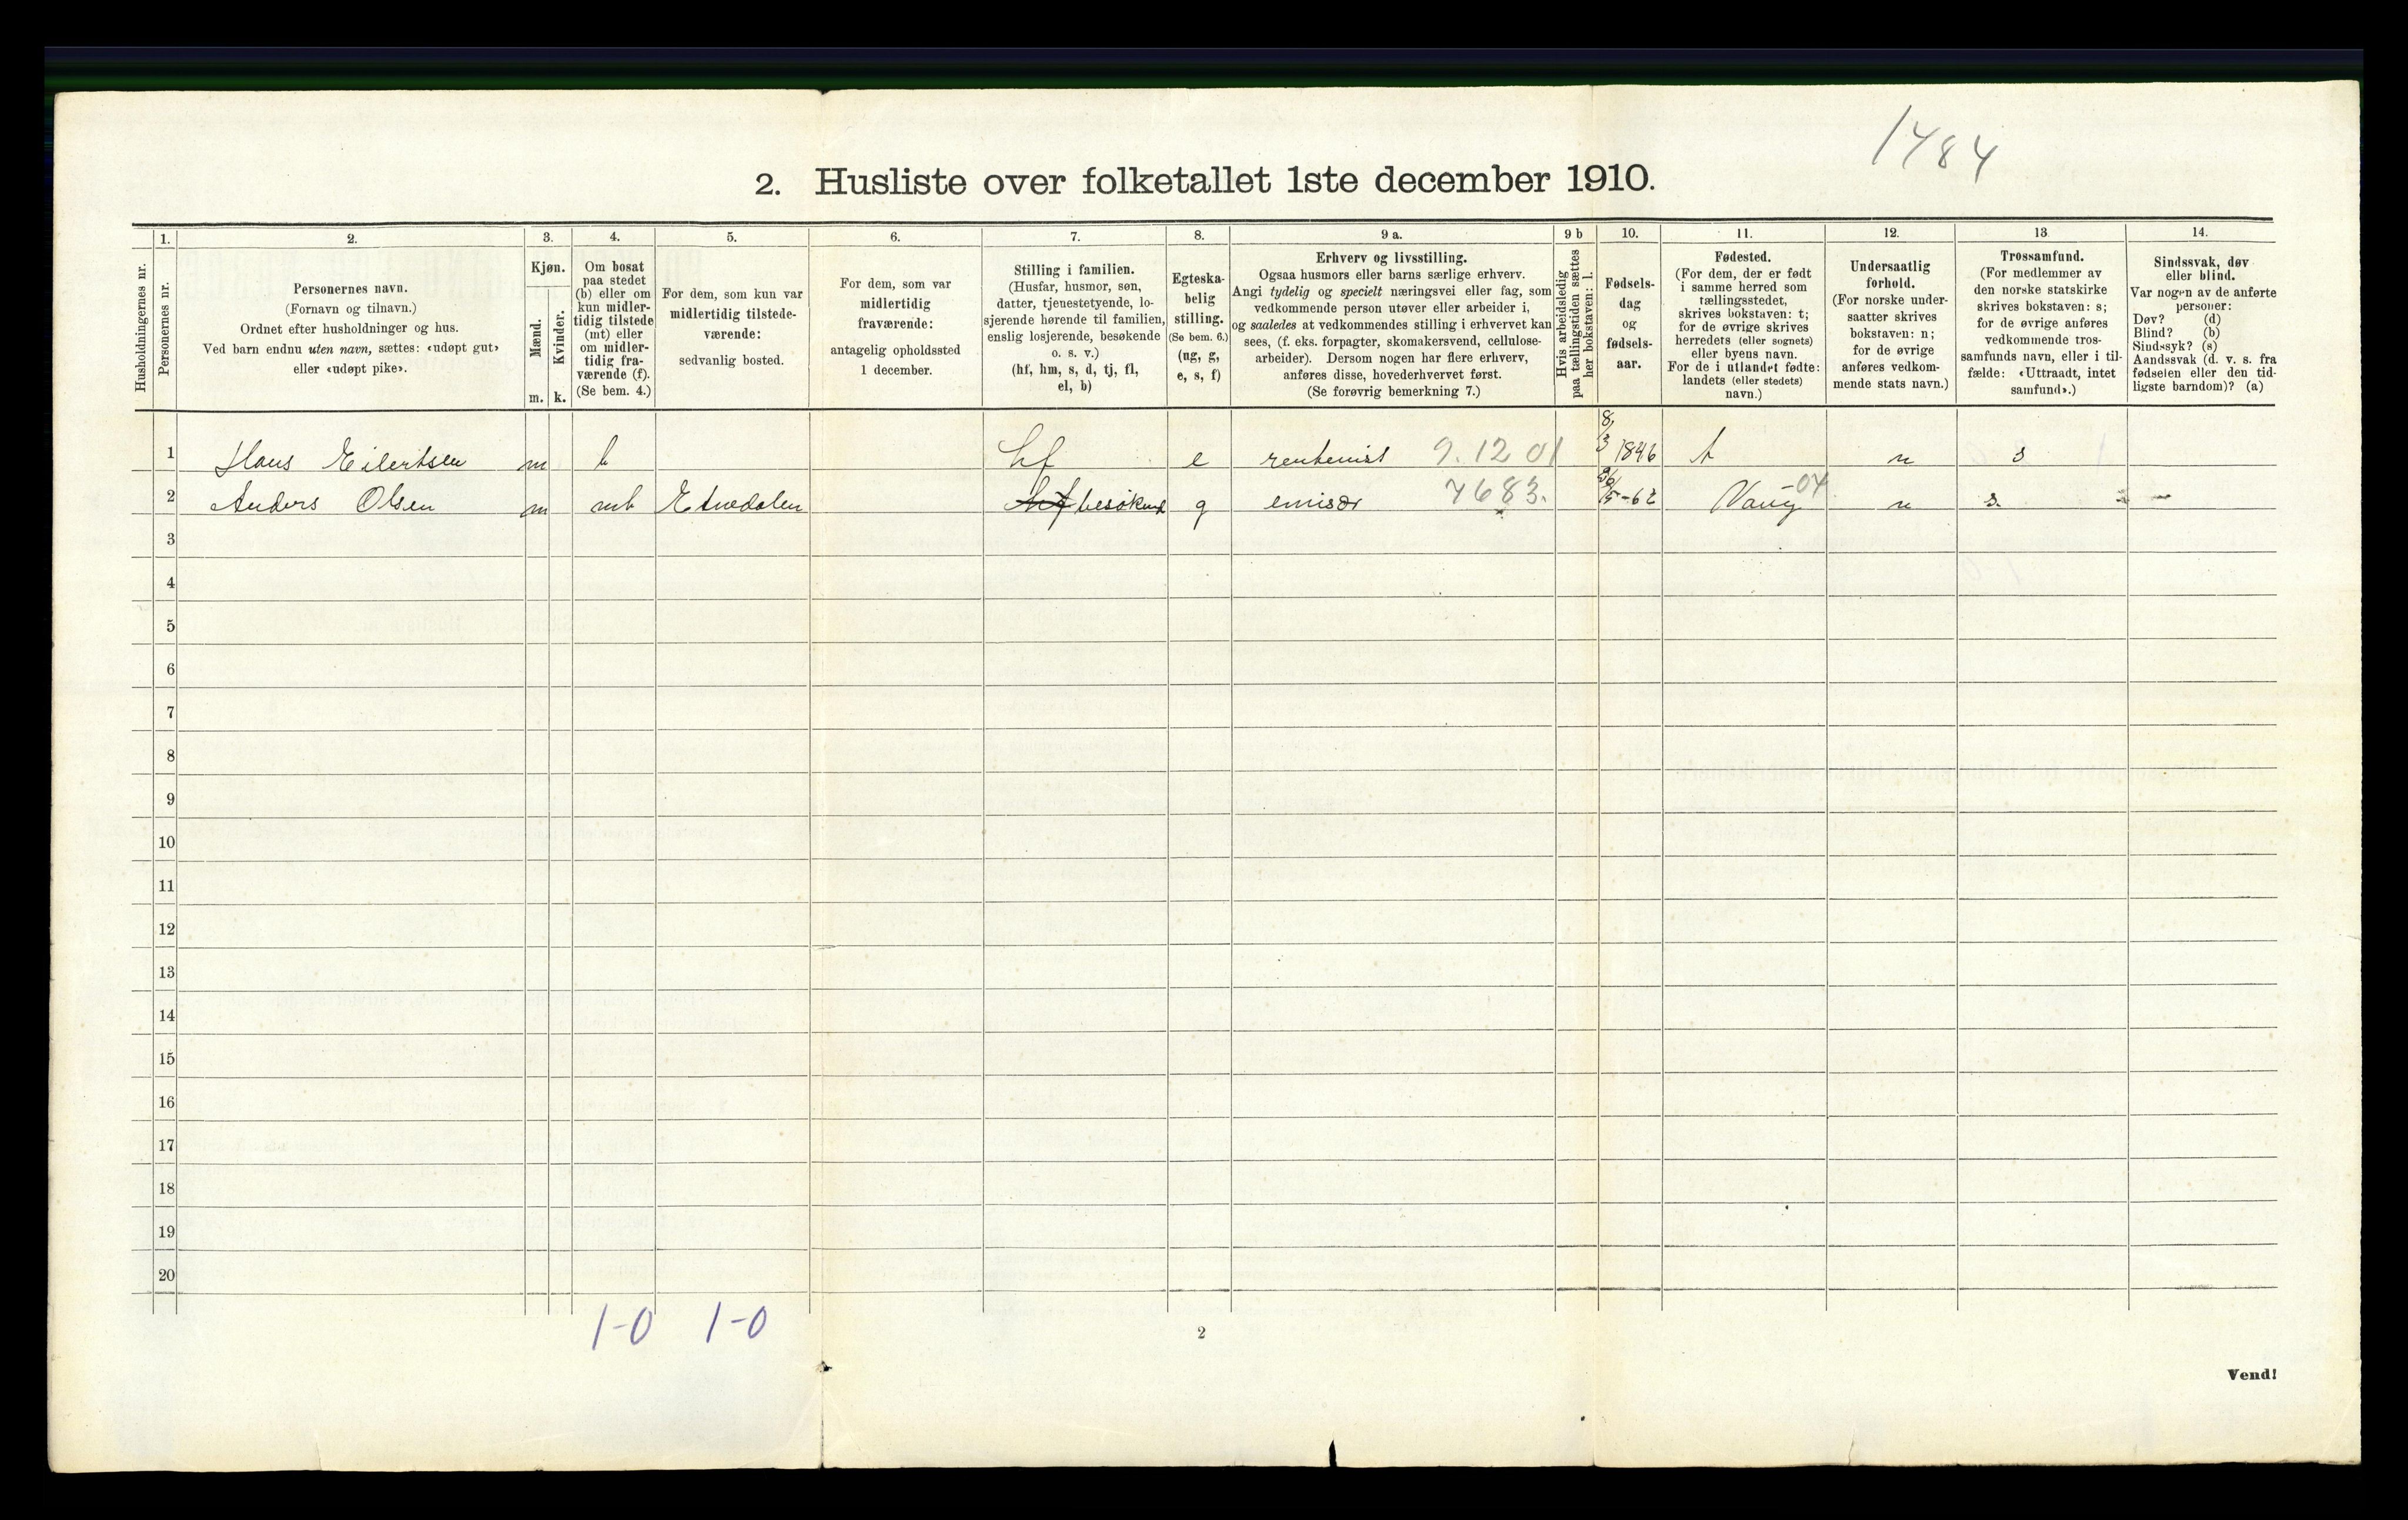 1484
2. Husliste over folketallet 1ste december 1910.
Husholdningernes nr.
1.
Personernes nr.
2.
Personernes navn.
(Fornavn og tilnavn.)
Ordnet efter husholdninger og hus.
Ved barn endnu uten navn, sættes: «udøpt gut»
eller «udøpt pike».
3.
Kjøn.
Mænd.
Kvinder.
m. k.
4.
Om bosat
paa stedet
(b) eller om
kun midler-
tidig tilstede
(mt) eller
om midler-
tidig fra-
værende (f).
(Se bem. 4.)
5.
For dem, som kun var
midlertidig tilstede-
værende:
sedvanlig bosted.
6.
For dem, som var
midlertidig
fraværende:
antagelig opholdssted
1 december.
7.
Stilling i familien.
(Husfar, husmor, søn,
datter, tjenestetyende, lo-
sjerende hørende til familien,
enslig losjerende, besøkende
o. s. v.)
(hf, hm, s, d, tj, fl,
el, b)
8.
Egteska-
belig
stilling.
(Se bem. 6.)
(ug, g,
e, s, f)
9 a.
Erhverv og livsstilling.
Ogsaa husmors eller barns særlige erhverv.
Angi tydelig og specielt næringsvei eller fag, som
vedkommende person utøver eller arbeider i,
og saaledes at vedkommendes stilling i erhvervet kan
sees, (f. eks. forpagter, skomakersvend, cellulose-
arbeider). Dersom nogen har flere erhverv,
anføres disse, hovederhvervet først.
(Se forøvrig bemerkning 7.)
9 b
Hvis arbeidsledig
paa tællingstiden sættes
her bokstaven: l.
10.
Fødsels-
dag
og
fødsels-
aar.
11.
Fødested.
(For dem, der er født
i samme herred som
tællingsstedet,
skrives bokstaven: t;
for de øvrige skrives
herredets (eller sognets)
eller byens navn.
For de i utlandet fødte:
landets (eller stedets)
navn.)
12.
Undersaatlig
forhold.
(For norske under-
saatter skrives
bokstaven: n;
for de øvrige
anføres vedkom-
mende stats navn.)
13.
Trossamfund.
(For medlemmer av
den norske statskirke
skrives bokstaven: s;
for de øvrige anføres
vedkommende tros-
samfunds navn, eller i til-
fælde: «Uttraadt, intet
samfund».)
14.
Sindssvak, døv
eller blind.
Var nogen av de anførte
personer:
Døv? (d)
Blind? (b)
Sindssyk? (s)
Aandssvak (d. v. s. fra
fødselen eller den tid-
ligste barndom)? (a)
1 Hans Eilertsen m b hf e rentenist 9.12 01 8/3 1846 t n s
2 Anders Olsen m mt Etnedalen hf besøkend g emisær 7683. /5-62 Vang 04 n s.
3
4
5
6
7
8
9
10
11
12
13
14
15
16
17
18
19
20
1-0 1-0
2
Vend!